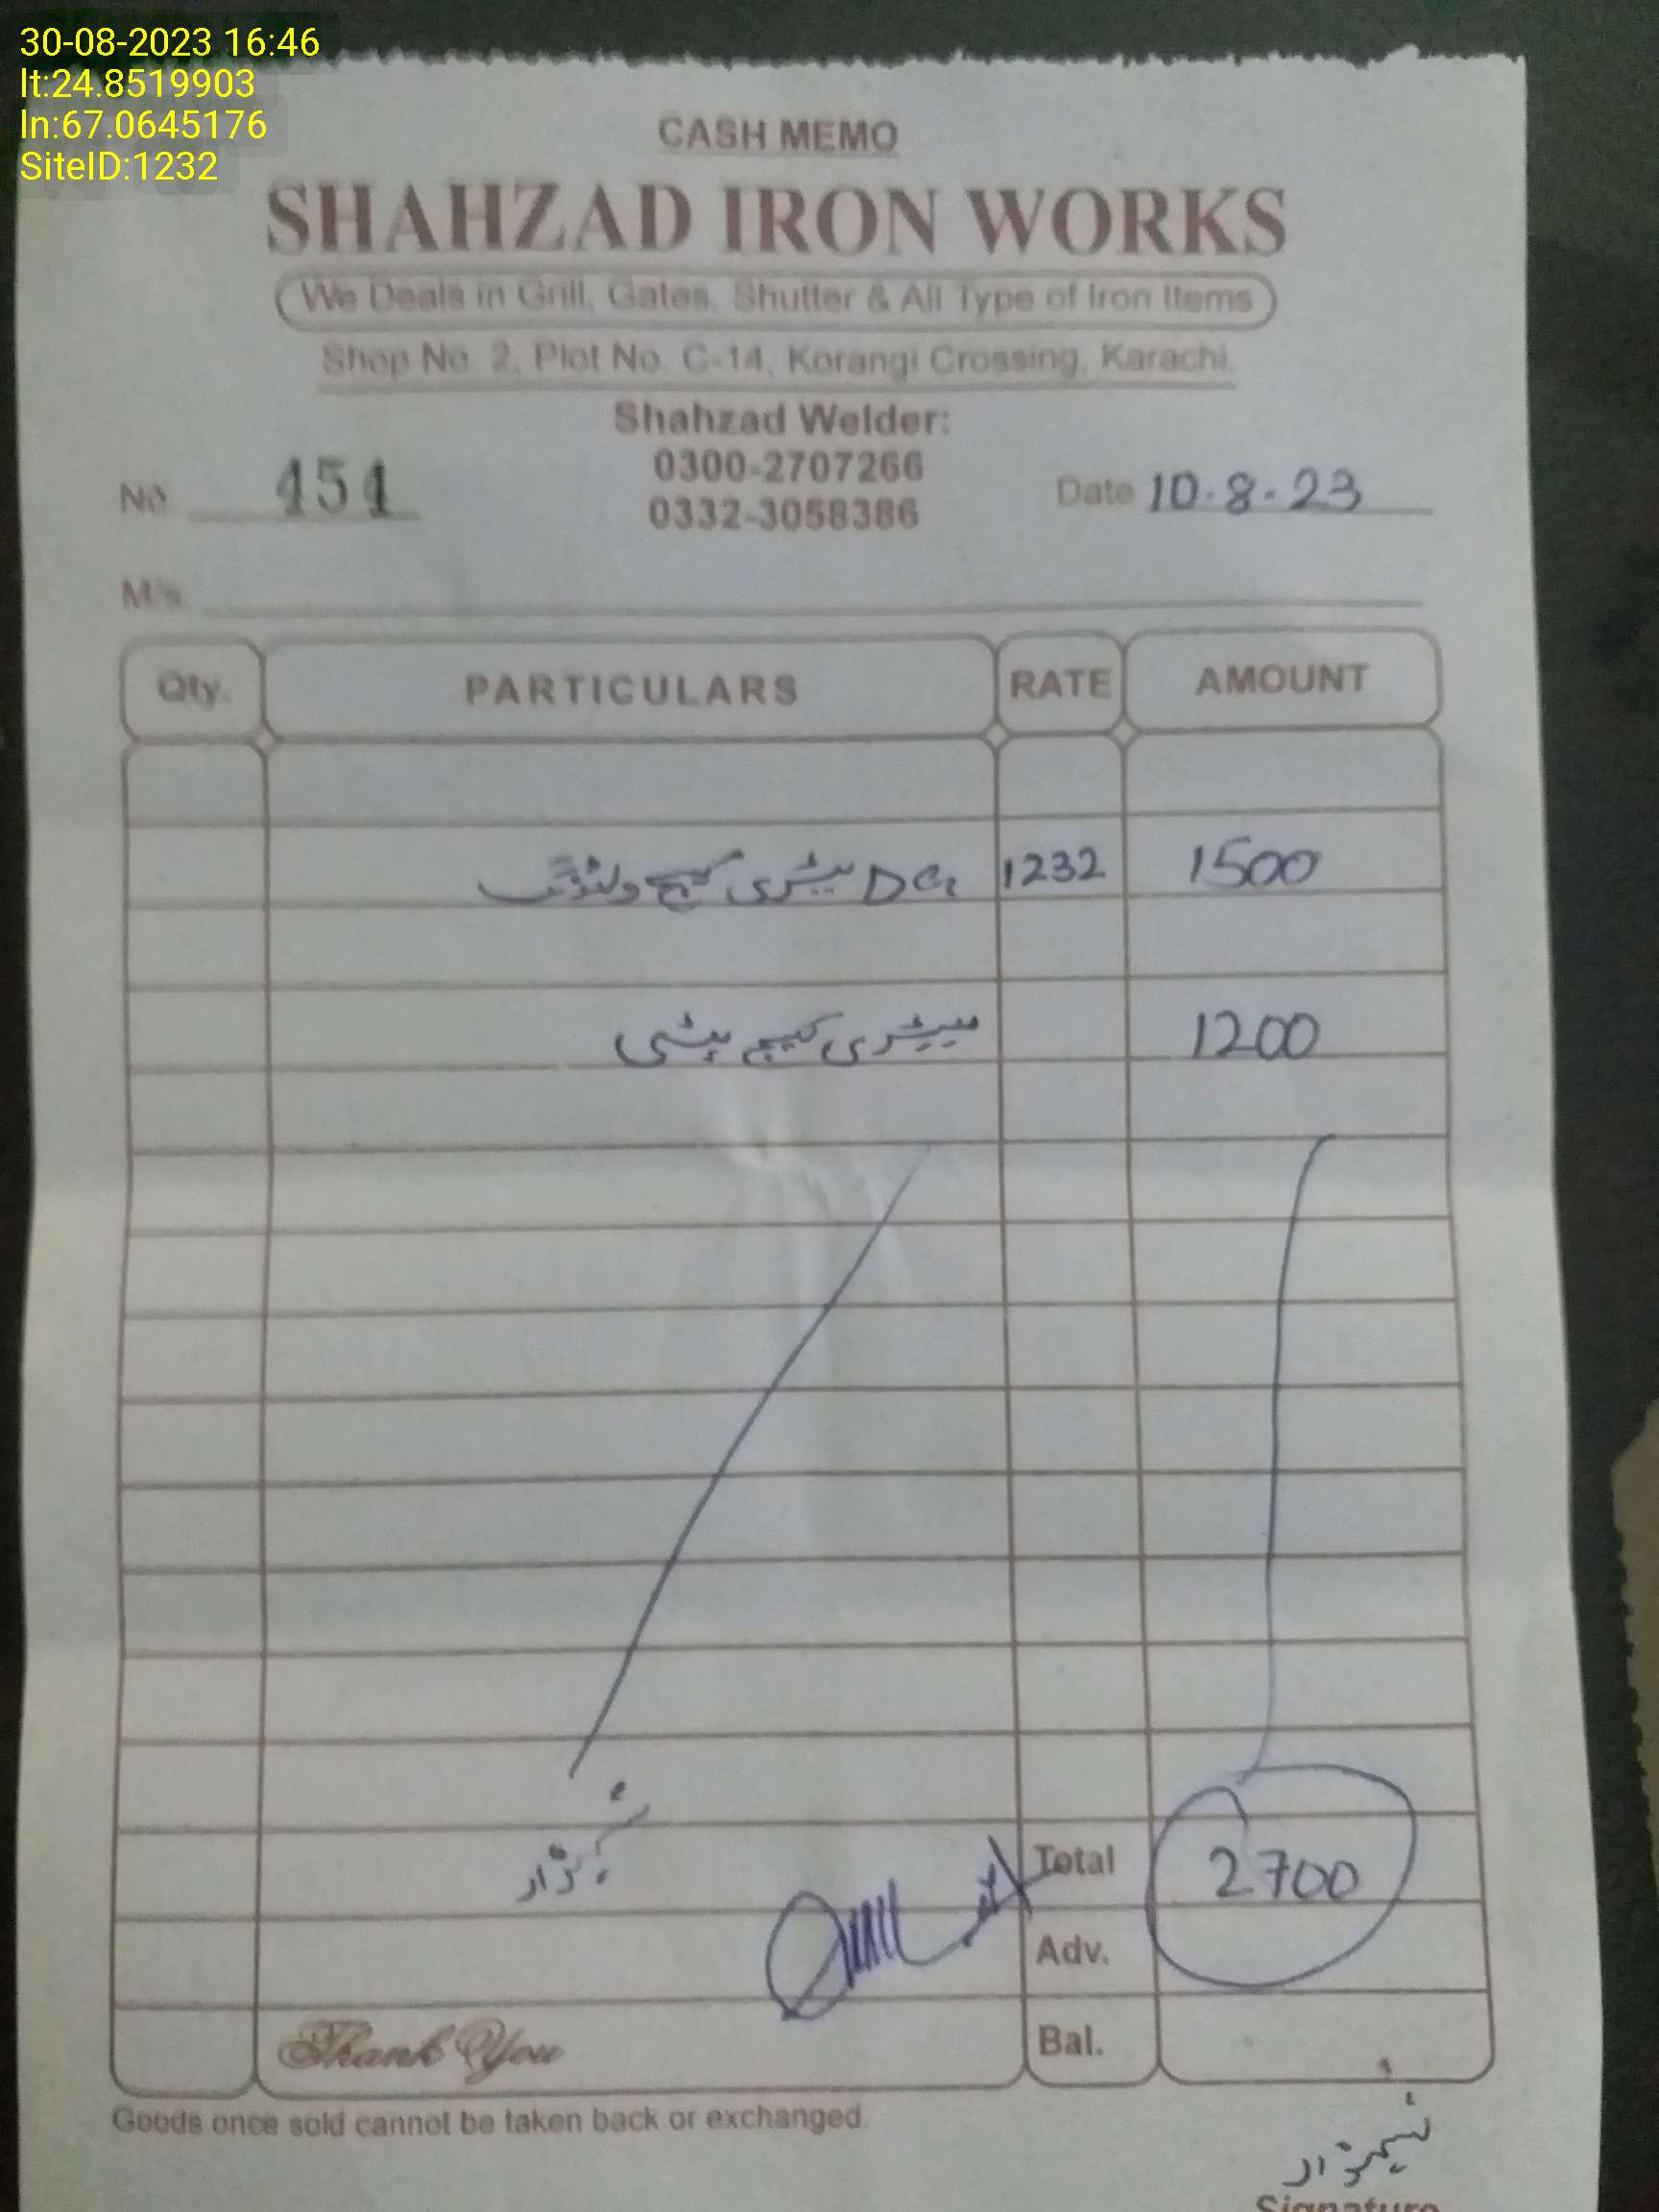 30-08-2023 16:46
lt:24.8519903
ln:67.0645176
SiteID:1232
CASH MEMO
SHAHZAD IRON WORKS
We Deals in Grill, Gates, Shutter & All Type of Iron Items
Shop No. 2, Plot No. C-14, Korangi Crossing, Karachi.
Shahzad Welder:
0300-2707266
0332-3058386
No 454
Date 10.8.23
M/s.
Qty. PARTICULARS RATE AMOUNT
DG بیٹری کیج ولڈنگ 1232 1500
بیٹری کیج پٹی 1200
Total 2700
Adv.
Thank You Bal.
Goods once sold cannot be taken back or exchanged.
Signature